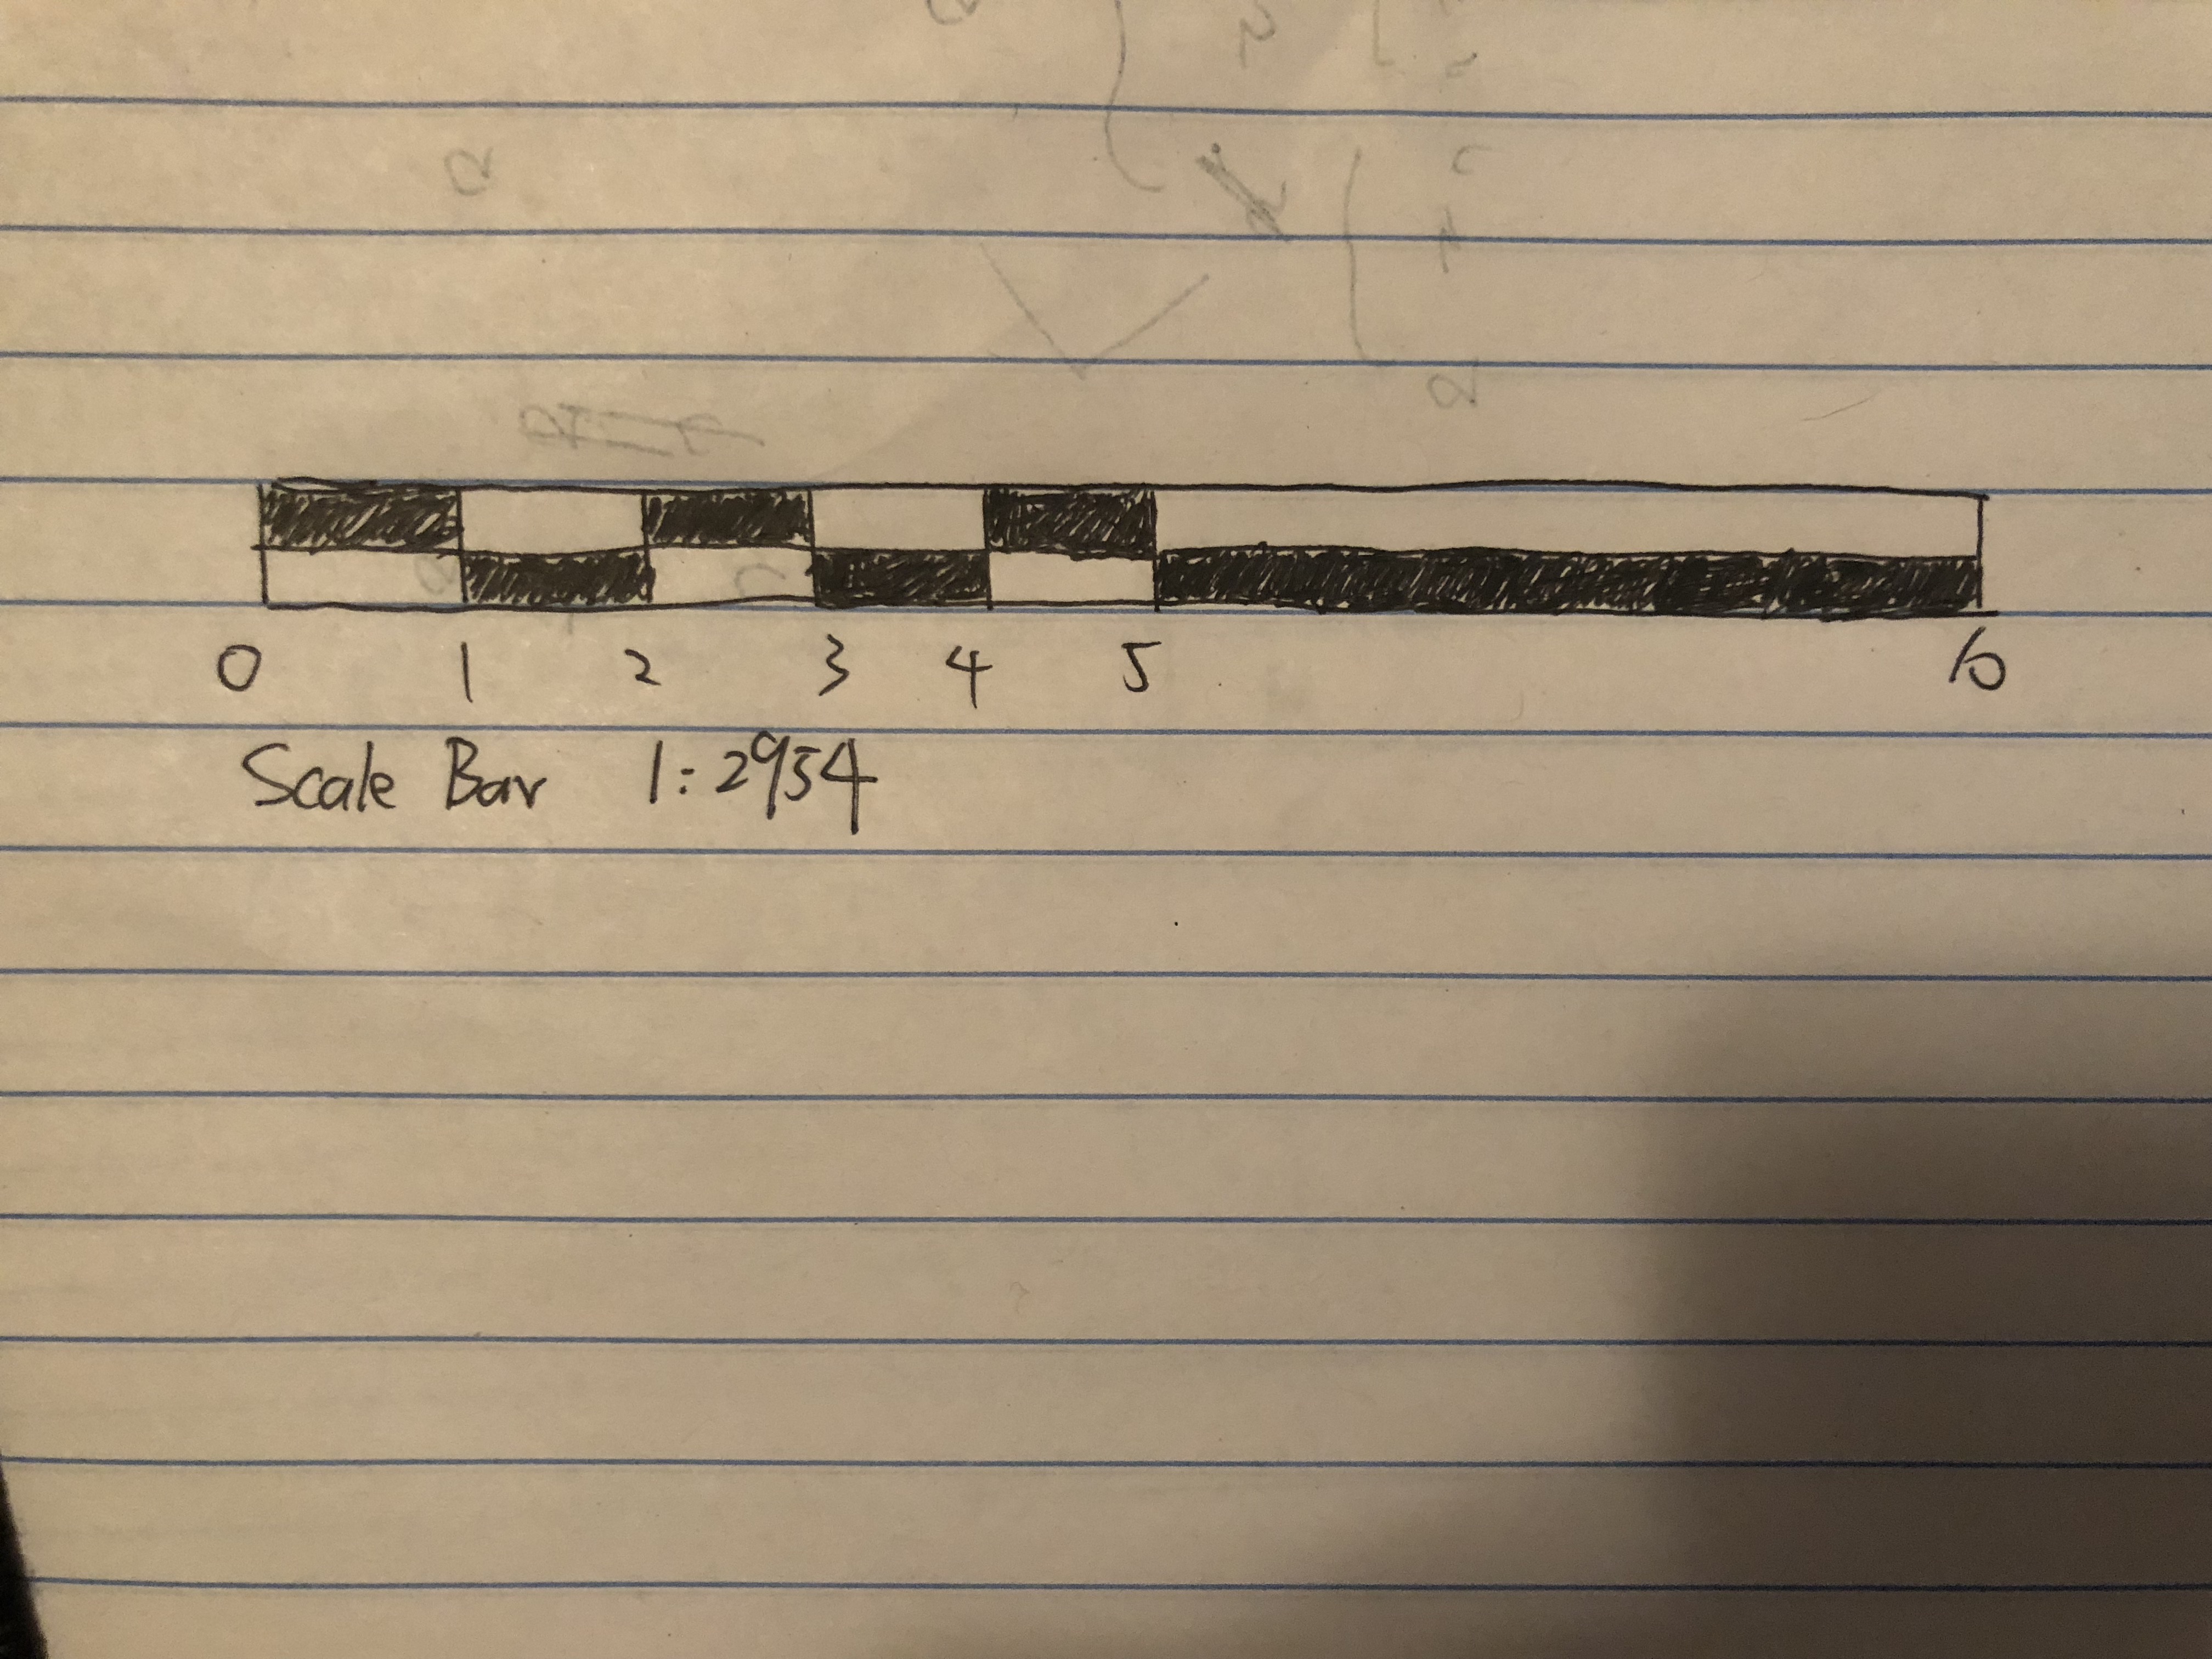 0 1 2 3 4 5 10
Scale Bar 1:2954